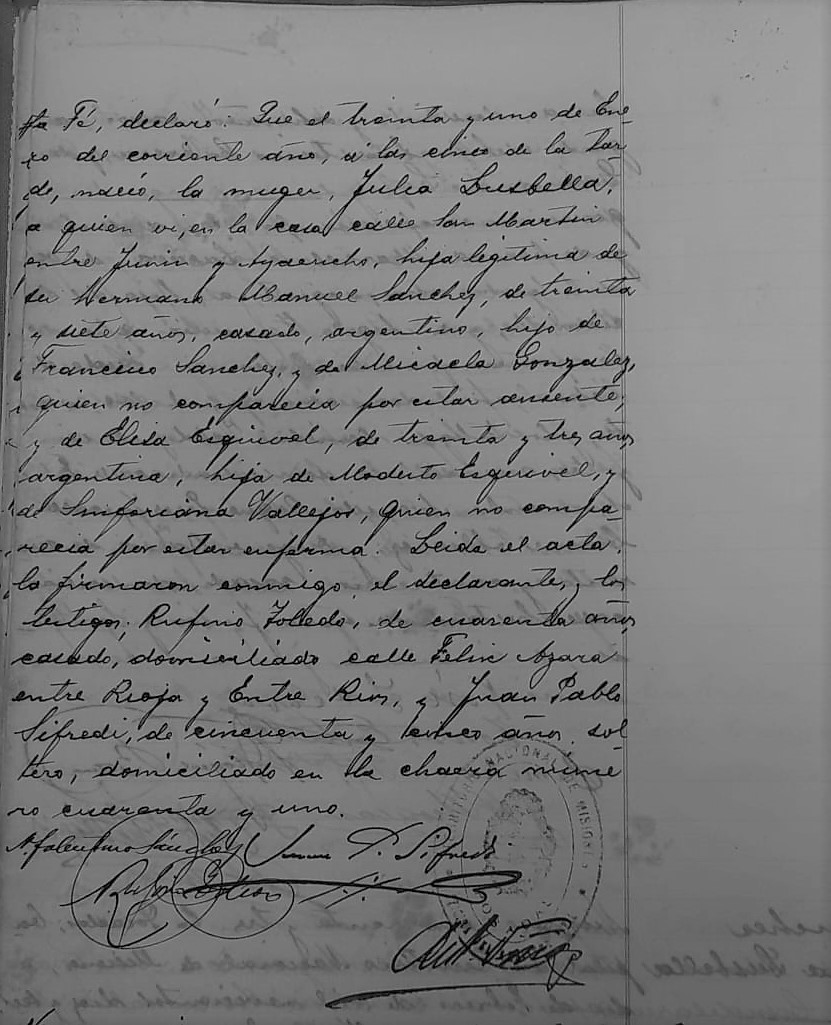 ta Fé, declaró: Que el treinta y uno de Ene-
ro del corriente año, á las cinco de la tar-
de, nació, la muger, Julia Lusbella,
a quien vi, en la casa calle San Martin
entre Junin y Ayacucho, hija legitima de
su hermano Manuel Sanchez, de treinta
y siete años, casado, argentino, hijo de
Francisco Sanchez, y de Micaela Gonzalez,
quien no comparecia por estar ausente;
y de Elisa Esquivel, de treinta y tres años,
argentina, hija de Modesto Esquivel, y
de Sinforiana Vallejos, quien no compa-
recia por estar enferma. Leida el acta,
la firmaron conmigo, el declarante, y los
testigos; Rufino Toledo, de cuarenta años,
casado, domiciliado calle Felix Azara
entre Rioja y Entre Rios, y Juan Pablo
Sifredi, de cincuenta y cinco años, sol-
tero, domiciliado en la chacra núme
ro cuarenta y uno.
Sánchez Juan P. Sifredi
Rufino Toledo
NACIONAL DE MISIONES